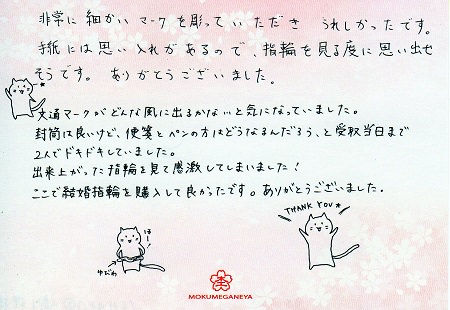 非常に細かいマークを彫っていただき うれしかったです。
手紙には思い入れがあるので、指輪を見る度に思い出せ
そうです。 ありがとうございました。
文通マークがどんな風に出るかな〜と気になっていました。
封筒は良いけど、便箋とペンの方はどうなるんだろう、と受取当日まで
2人でドキドキしていました。
出来上がった指輪を見て感激してしまいました!
ここで結婚指輪を購入して良かったです。ありがとうございました。
THANK YOU★
ほー!
ゆびわ
MOKUMEGANEYA